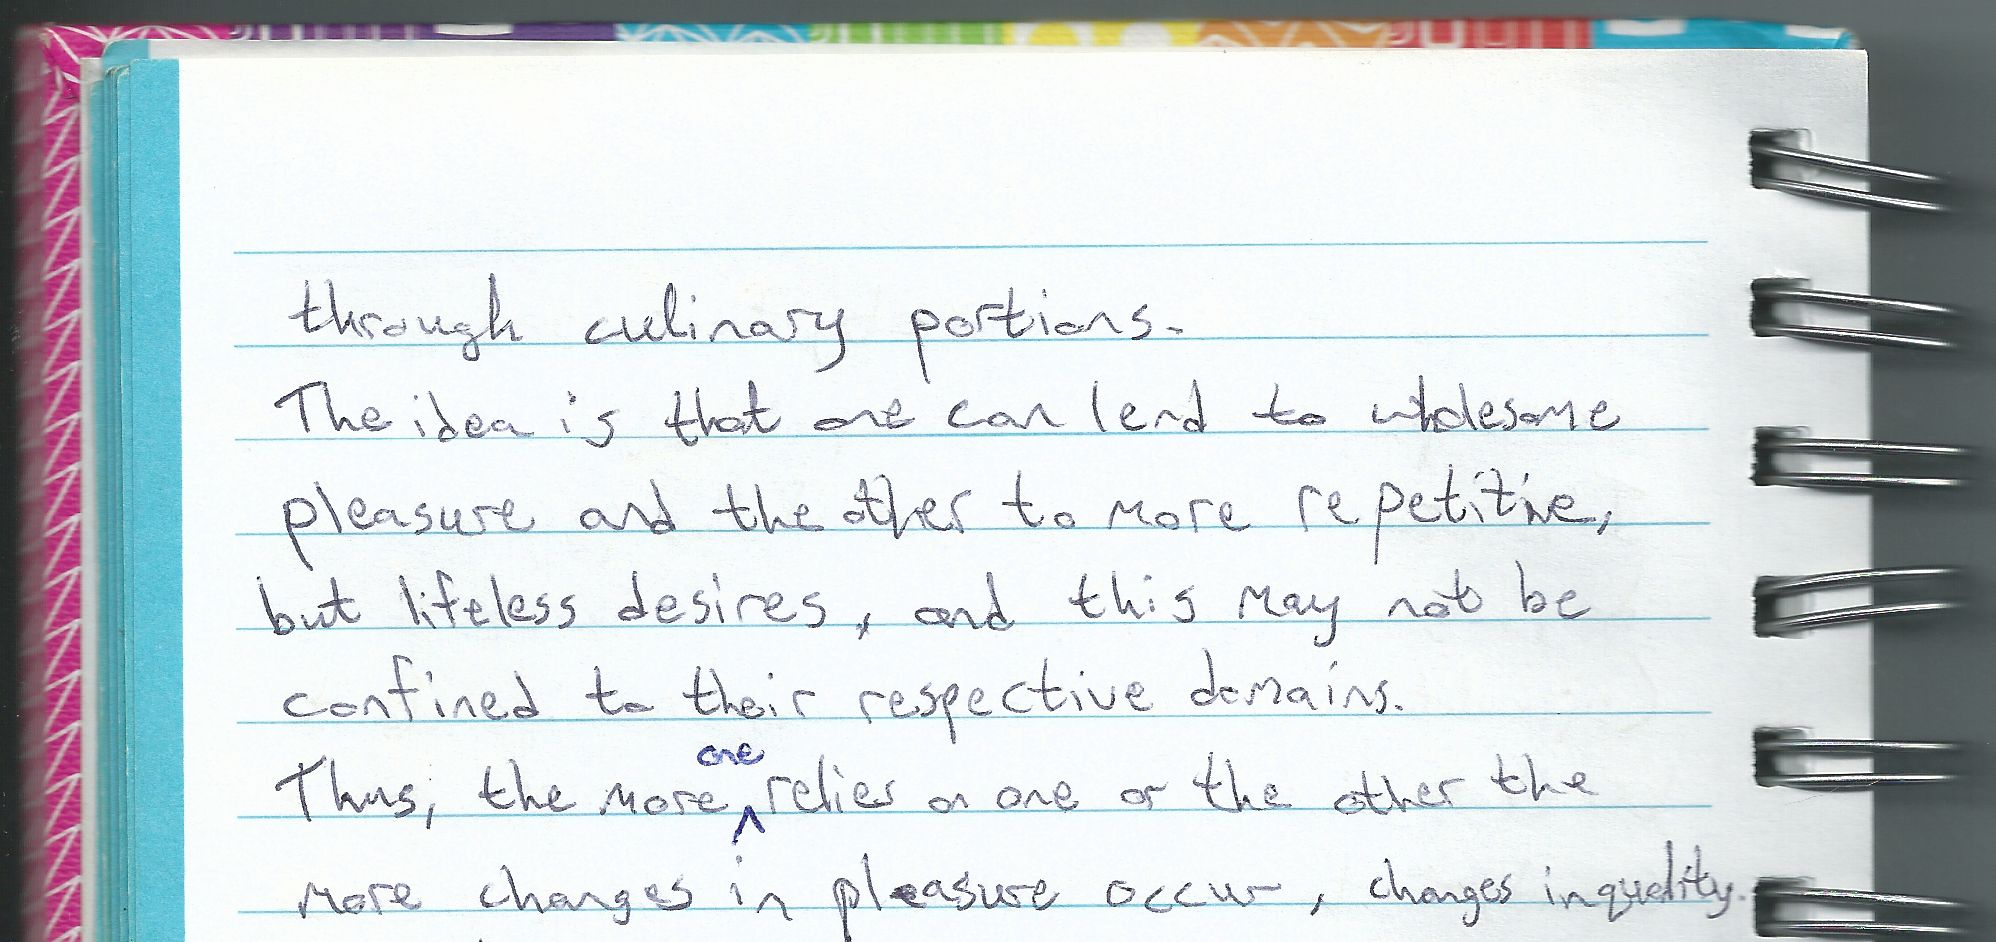 through culinary portions.
The idea is that one can lend to wholesome
pleasure and the other to more repetitive,
but lifeless desires, and this may not be
confined to their respective domains.
Thus, the more one relies on one or the other the
more changes in pleasure occur, changes in quality.